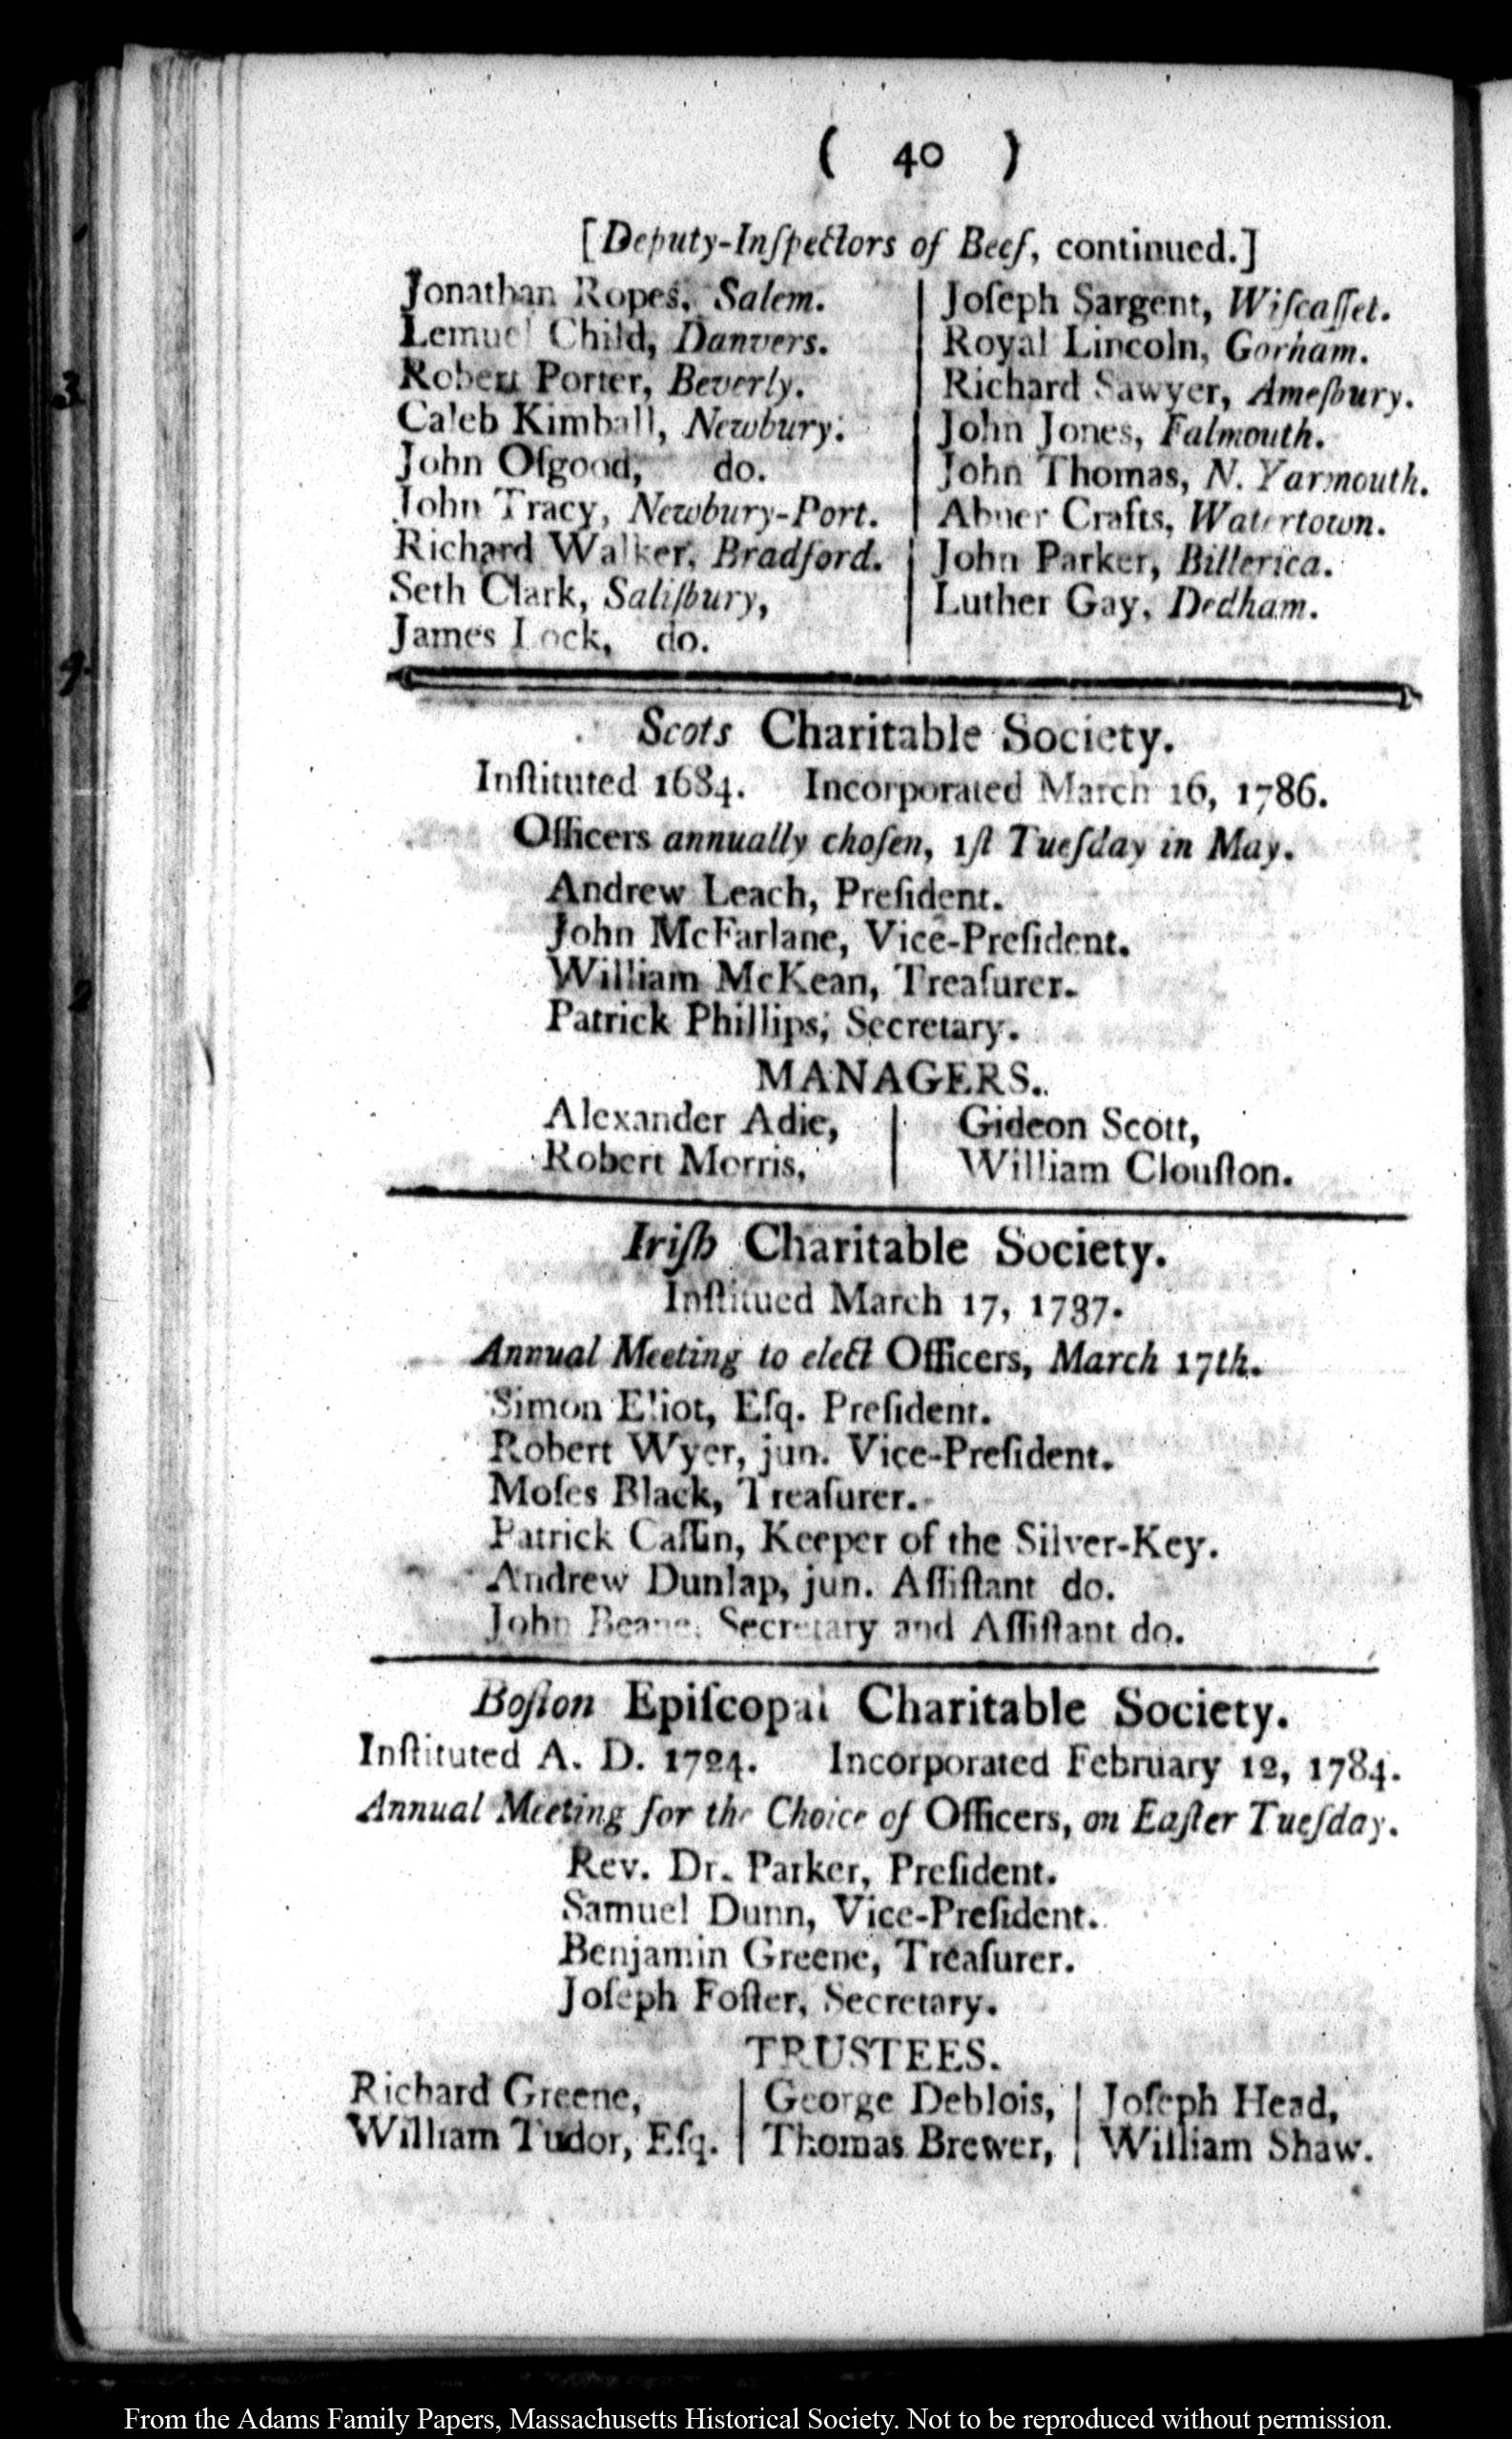 ( 40 )
[Deputy-Inſpectors of Beef, continued.]
Jonathan Ropes, Salem.
Lemuel Child, Danvers.
Robert Porter, Beverly.
Caleb Kimball, Newbury.
John Oſgood, do.
John Tracy, Newbury-Port.
Richard Walker, Bradford.
Seth Clark, Saliſbury,
James Lock, do.
Joſeph Sargent, Wiſcaſſet.
Royal Lincoln, Gorham.
Richard Sawyer, Ameſbury.
John Jones, Falmouth.
John Thomas, N. Yarmouth.
Abner Crafts, Watertown.
John Parker, Billerica.
Luther Gay, Dedham.
Scots Charitable Society.
Inſtituted 1684. Incorporated March 16, 1786.
Officers annually choſen, 1ſt Tueſday in May.
Andrew Leach, Preſident.
John McFarlane, Vice-Preſident.
William McKean, Treaſurer.
Patrick Phillips, Secretary.
MANAGERS.
Alexander Adie,
Robert Morris,
Gideon Scott,
William Clouſton.
Iriſh Charitable Society.
Inſtitued March 17, 1737.
Annual Meeting to elect Officers, March 17th.
Simon Eliot, Eſq. Preſident.
Robert Wyer, jun. Vice-Preſident.
Moſes Black, Treaſurer.
Patrick Caſſin, Keeper of the Silver-Key.
Andrew Dunlap, jun. Aſſiſtant do.
John Beane, Secretary and Aſſiſtant do.
Boſton Epiſcopal Charitable Society.
Inſtituted A. D. 1724. Incorporated February 12, 1784.
Annual Meeting for the Choice of Officers, on Eaſter Tueſday.
Rev. Dr. Parker, Preſident.
Samuel Dunn, Vice-Preſident.
Benjamin Greene, Treaſurer.
Joſeph Foſter, Secretary.
TRUSTEES.
Richard Greene,
William Tudor, Eſq.
George Deblois,
Thomas Brewer,
Joſeph Head,
William Shaw.
From the Adams Family Papers, Massachusetts Historical Society. Not to be reproduced without permission.